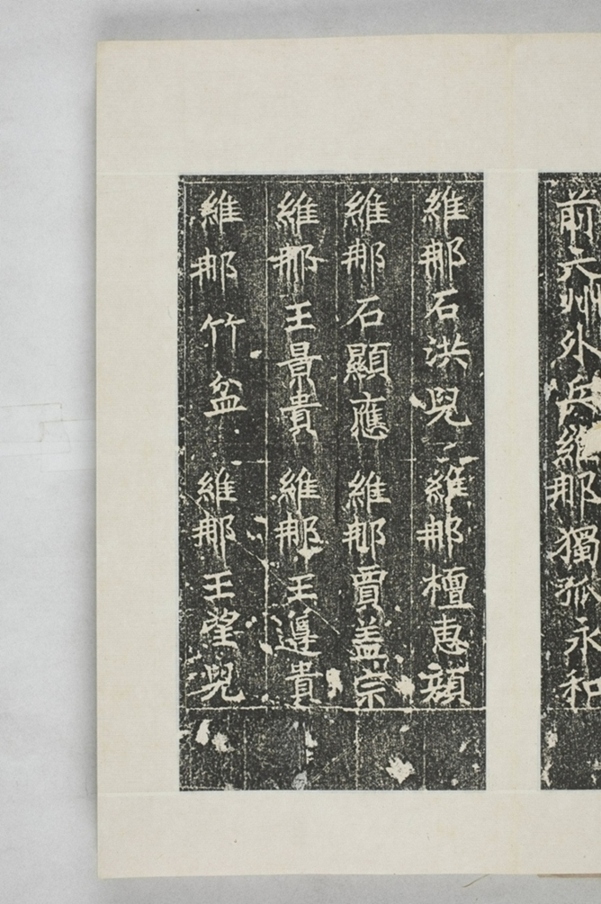 前六州外兵維那獨孤永和
維那石洪兒 維那檀惠顏
維那石顯應 維那賈盖宗
維那王景貴 維那王遵貴
維那竹盆 維那王望兒